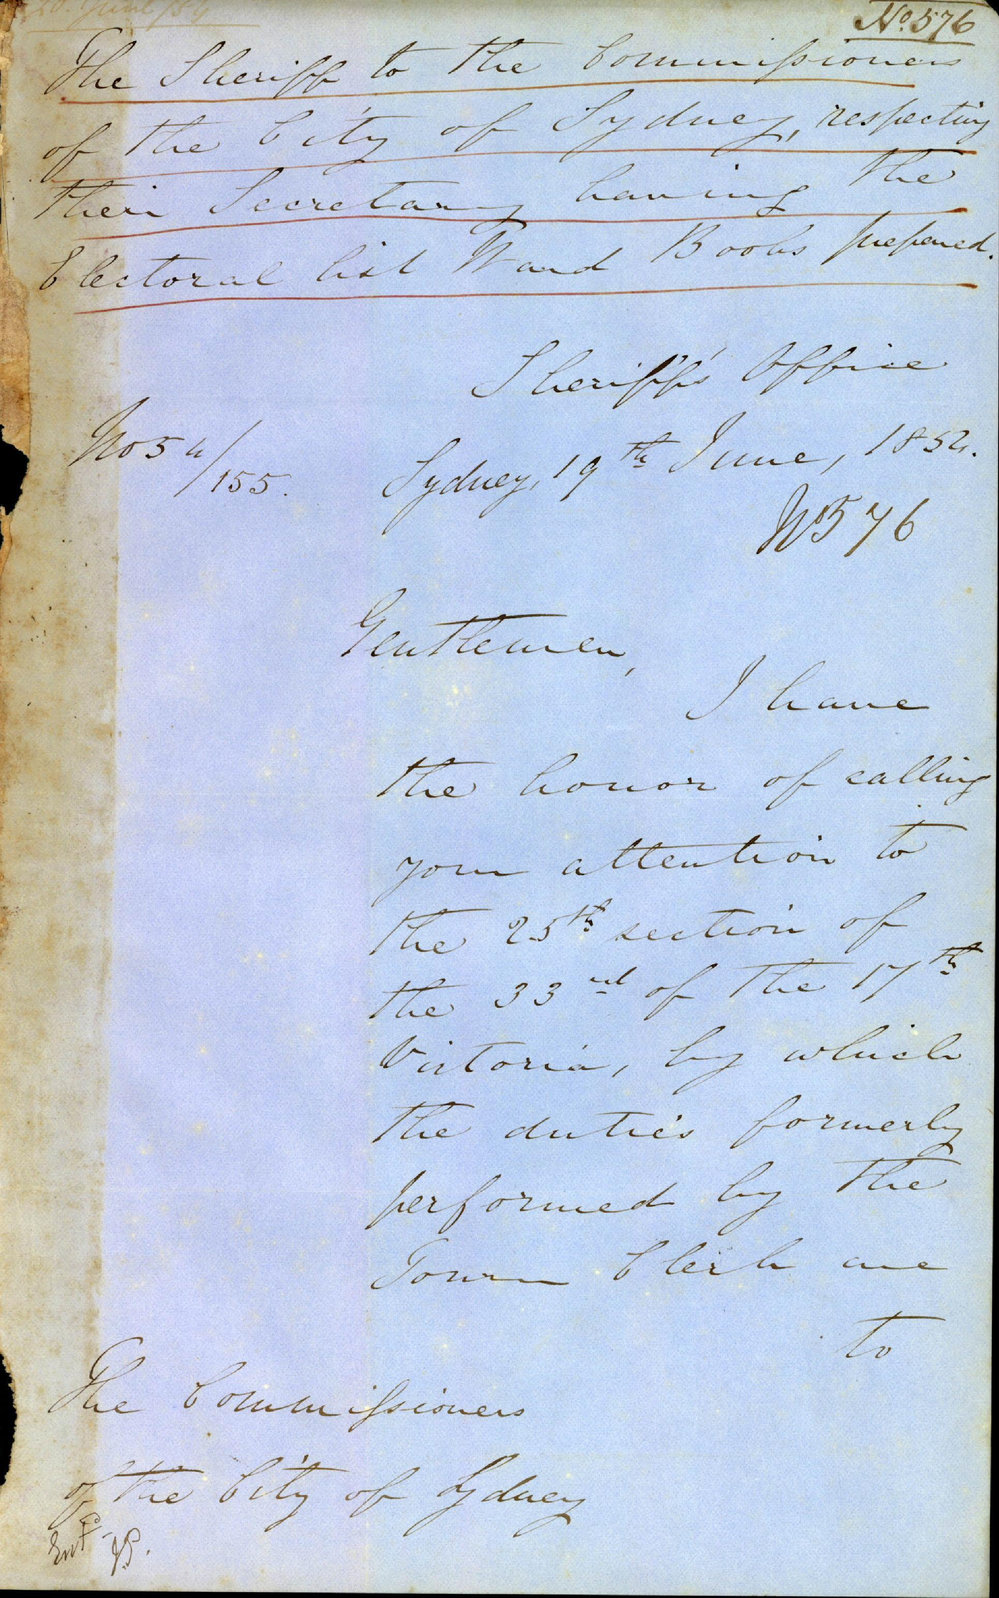 20. June /54
No. 576
The Sheriff to the Commissioners
of the City of Sydney, respecting
their Secretary having the
Electoral list Ward Books prepared.
Sheriff's Office
No 54/155.
Sydney, 19th June, 1854.
No 576
Gentlemen,
I have
the honor of calling
your attention to
the 25th section of
the 33rd of the 17th
Victoria, by which
the duties formerly
performed by the
Town Clerk are
to
The Commissioners
of the City of Sydney